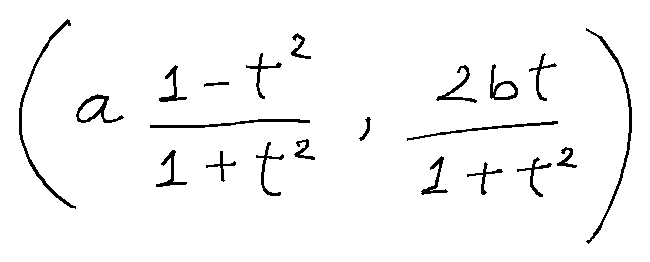 $\left( a \frac{1-t^2}{1+t^2}, \frac{2bt}{1+t^2} \right)$